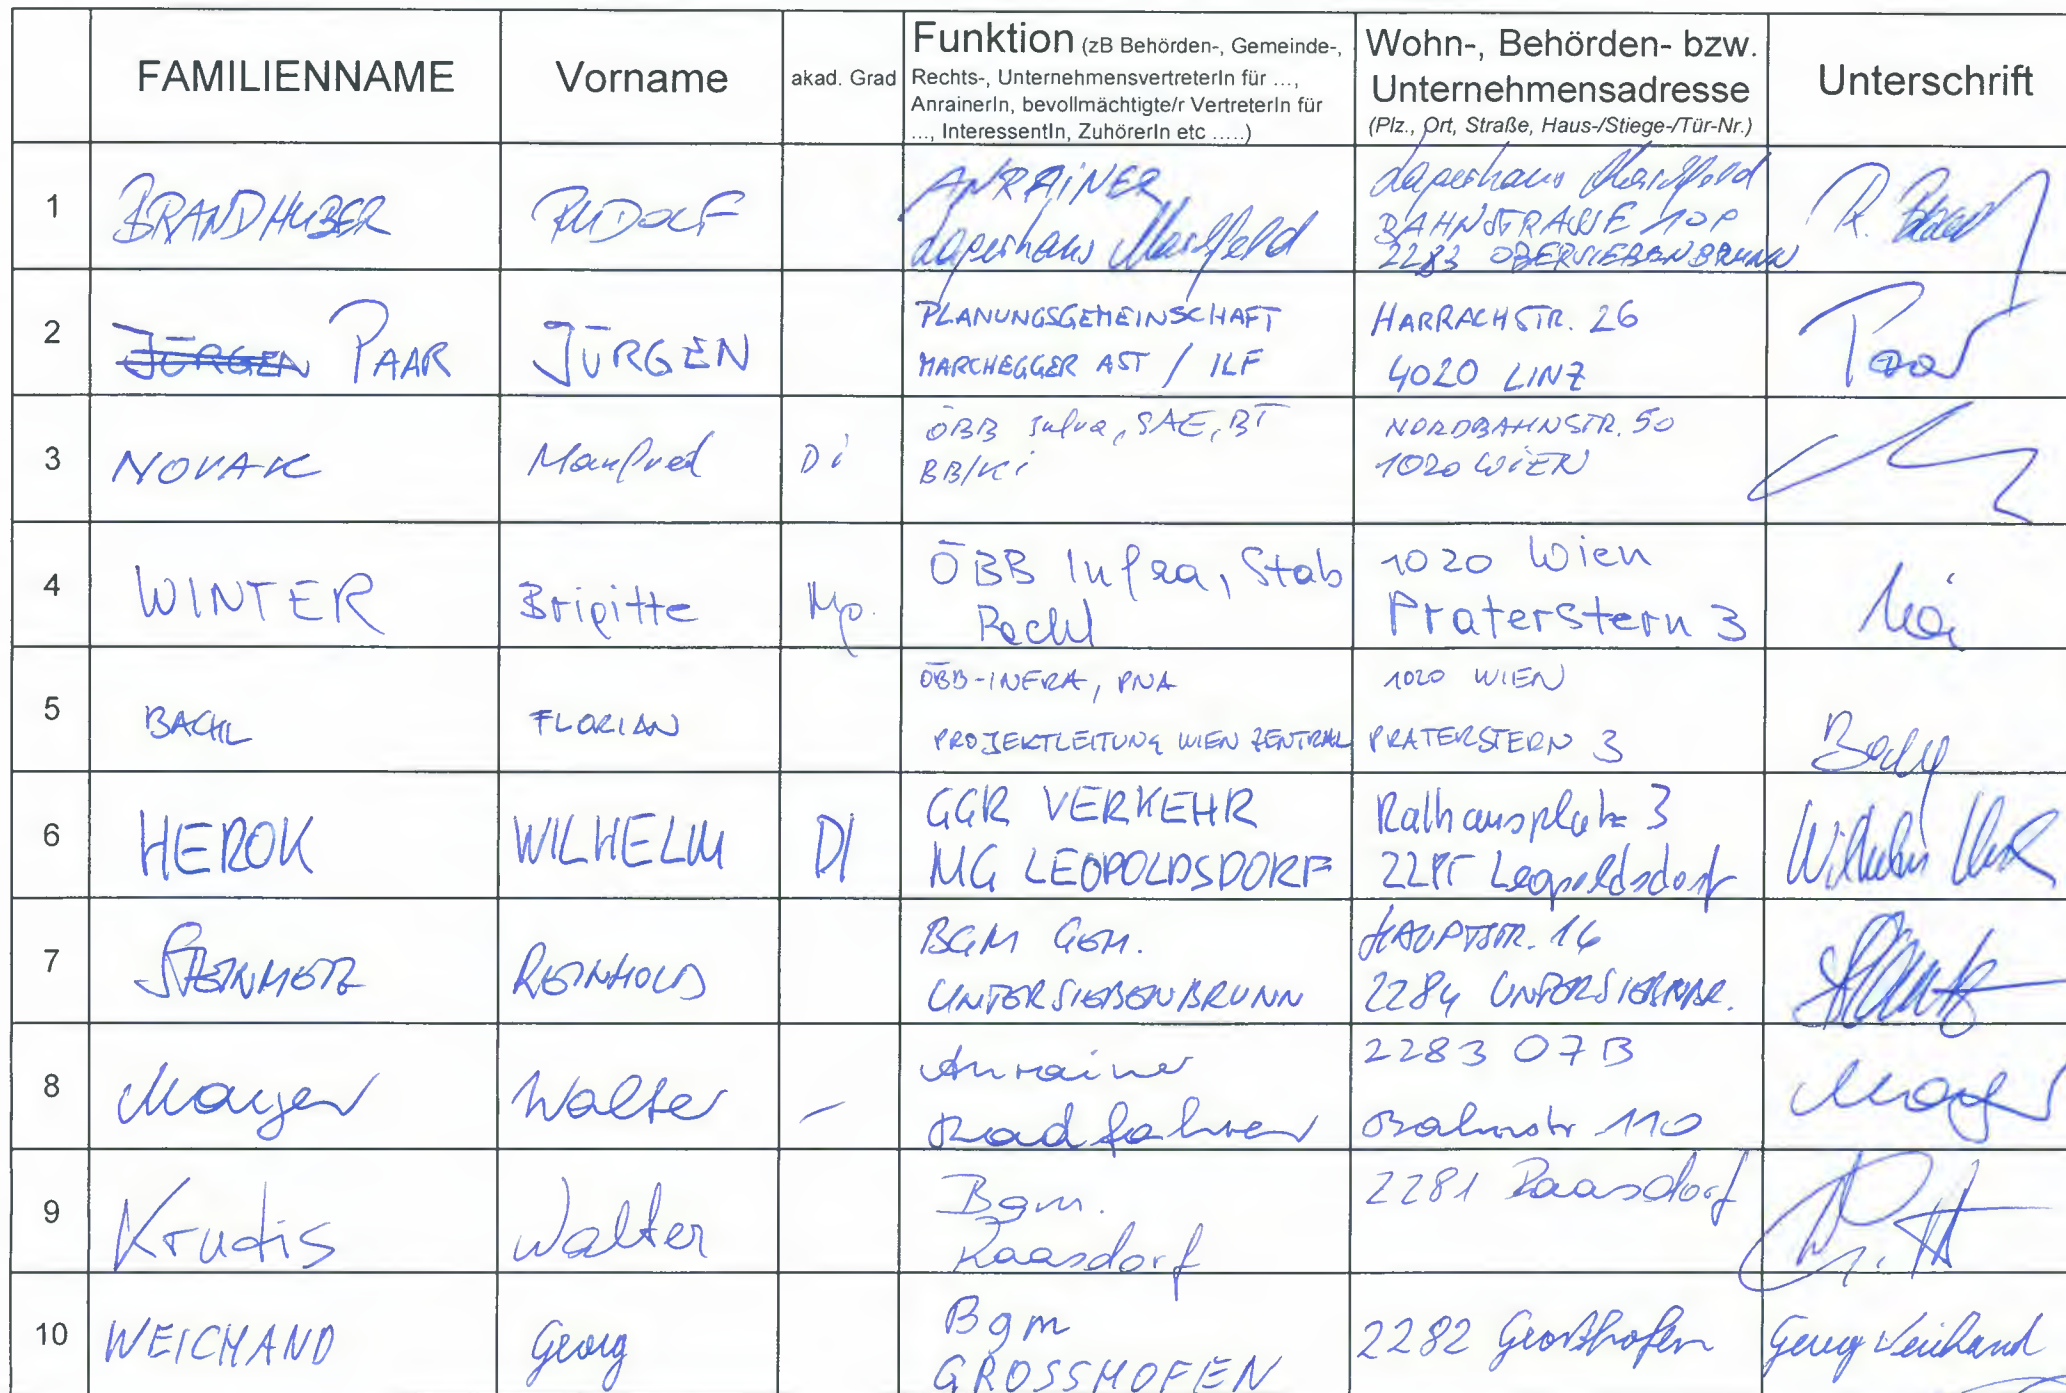 FAMILIENNAME
Vorname
akad. Grad
Funktion (zB Behörden-, Gemeinde-,
Rechts-, UnternehmensvertreterIn für ...,
AnrainerIn, bevollmächtigte/r VertreterIn für
..., InteressentIn, ZuhörerIn etc .....)
Wohn-, Behörden- bzw.
Unternehmensadresse
(Plz., Ort, Straße, Haus-/Stiege-/Tür-Nr.)
Unterschrift
1
BRANDHUBER
RUDOLF
ANRAINER
Lagerhaus Marchfeld
Lagerhaus Marchfeld
BAHNSTRASSE
2283 OBERSIEBENBRUNN
R.
2
JÜRGEN PAAR
JÜRGEN
PLANUNGSGEMEINSCHAFT
MARCHEGGER AST / ILF
HARRACHSTR. 26
4020 LINZ
Paar
3
NOVAK
Manfred
Di
ÖBB Infra, SAE, BT
BB/Ki
NORDBAHNSTR. 50
1020 WIEN
4
WINTER
Brigitte
Mag.
ÖBB Infra, Stab
Recht
1020 Wien
Praterstern 3
5
BACHL
FLORIAN
ÖBB-INFRA, PNA
PROJEKTLEITUNG WIEN ZENTRAL
1020 WIEN
PRATERSTERN 3
6
HEROK
WILHELM
DI
GGR VERKEHR
MG LEOPOLDSDORF
Rathausplatz 3
2285 Leopoldsdorf
Wilhelm
7
STEINMETZ
REINHOLD
BGM GEM.
UNTERSIEBENBRUNN
HAUPTSTR. 16
2284 UNTERSIEBNBR.
8
Mayer
Walter
-
Anrainer
Radfahrer
2283 O7B
Bahnstr 110
Mayer
9
Krutis
Walter
Bgm.
Raasdorf
2281 Raasdorf
10
WEICHAND
Georg
Bgm
GROSSHOFEN
2282 Großhofen
Georg Weichand